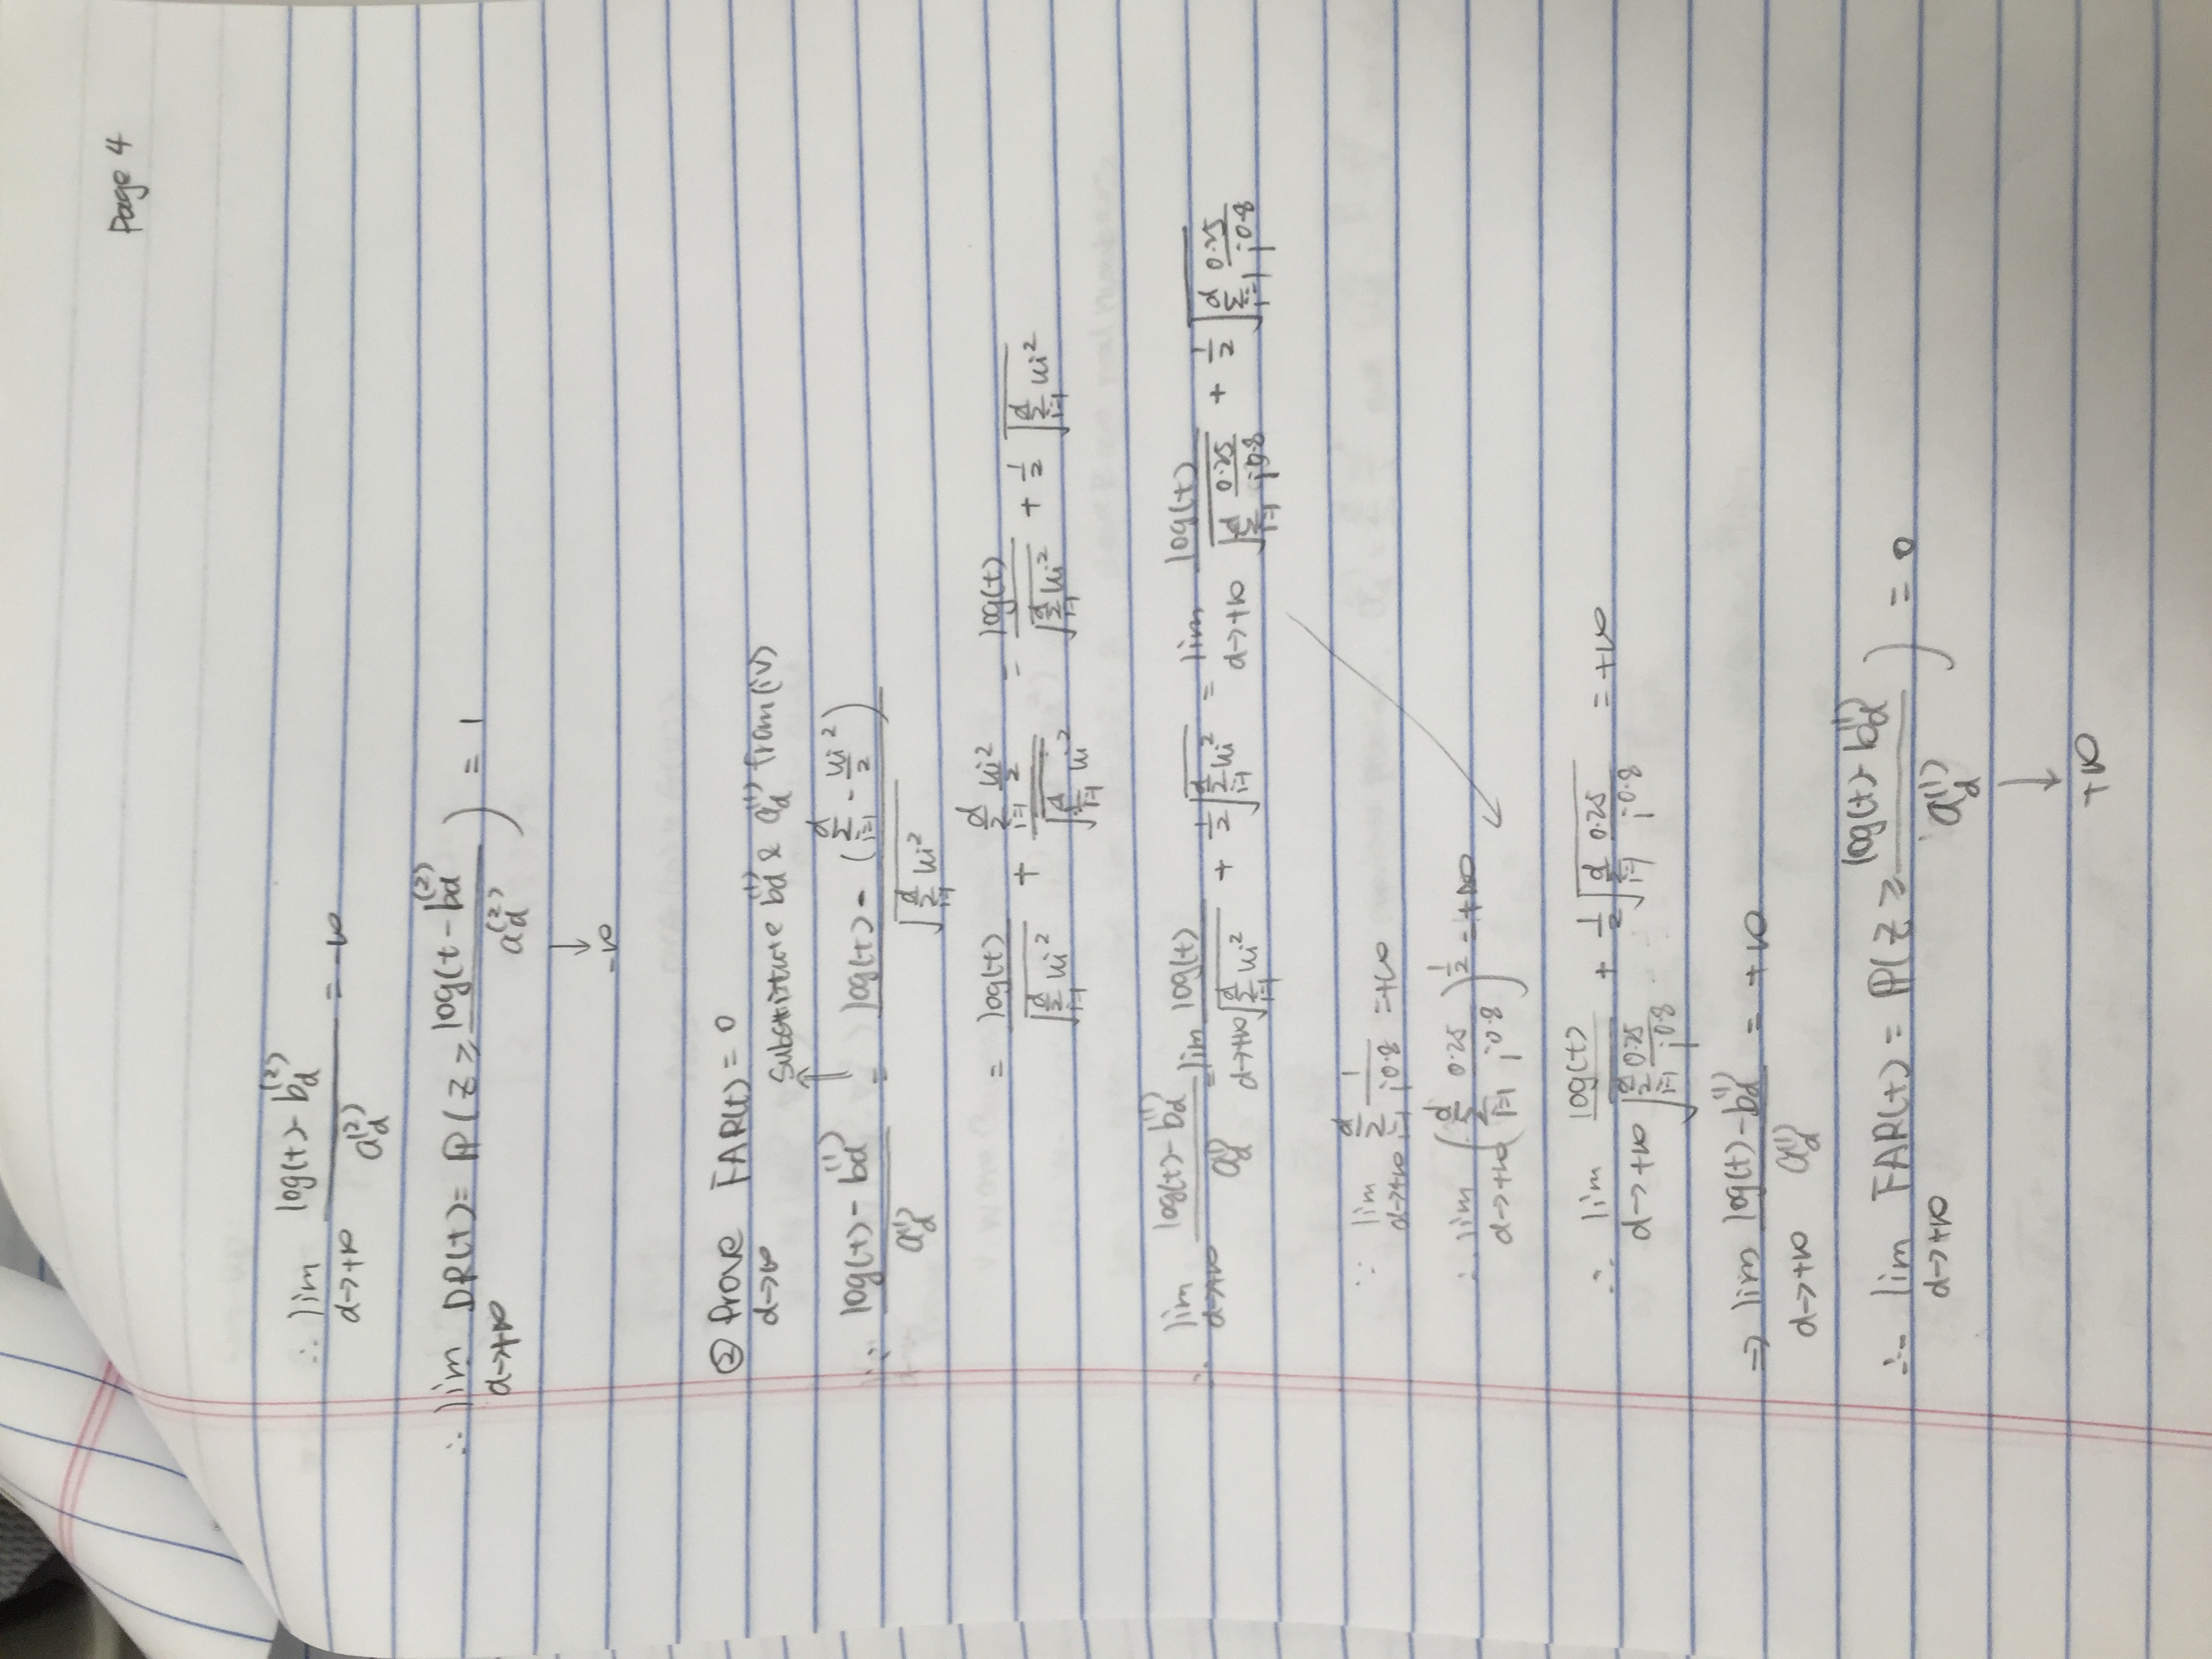 Page 4
∴ lim_{d→+∞} (log(t) - b_d^{(2)}) / a_d^{(2)} = -∞
∴ lim_{d→+∞} DR(t) = ℙ(Z ≥ (log(t - b_d^{(2)}) / a_d^{(2)}) = 1
↓
-∞
② Prove FAR(t) = 0
d→∞
Substitute b_d^{(1)} & a_d^{(1)} from (iv)
∵ (log(t) - b_d^{(1)}) / a_d^{(1)} = (log(t) - (∑_{i=1}^{d} - u_i^2/2)) / √(∑_{i=1}^{d} u_i^2)
= log(t) / √(∑_{i=1}^{d} u_i^2) + (∑_{i=1}^{d} u_i^2/2) / √(∑_{i=1}^{d} u_i^2) = log(t) / √(∑_{i=1}^{d} u_i^2) + 1/2 √(∑_{i=1}^{d} u_i^2)
∴ lim_{d→+∞} (log(t) - b_d^{(1)}) / a_d^{(1)} = lim_{d→+∞} log(t) / √(∑_{i=1}^{d} u_i^2) + 1/2 √(∑_{i=1}^{d} u_i^2) = lim_{d→+∞} log(t) / √(∑_{i=1}^{d} 0.25/i^{0.8}) + 1/2 √(∑_{i=1}^{d} 0.25/i^{0.8})
∵ lim_{d→+∞} ∑_{i=1}^{d} 1/i^{0.8} = +∞
∴ lim_{d→+∞} (∑_{i=1}^{d} 0.25/i^{0.8})^{1/2} = +∞
∴ lim_{d→+∞} log(t) / √(∑_{i=1}^{d} 0.25/i^{0.8}) + 1/2 √(∑_{i=1}^{d} 0.25/i^{0.8}) = +∞
⇒ lim_{d→+∞} (log(t) - b_d^{(1)}) / a_d^{(1)} = +∞
∴ lim_{d→+∞} FAR(t) = ℙ(Z ≥ (log(t) - b_d^{(1)}) / a_d^{(1)}) = 0
↓
+∞